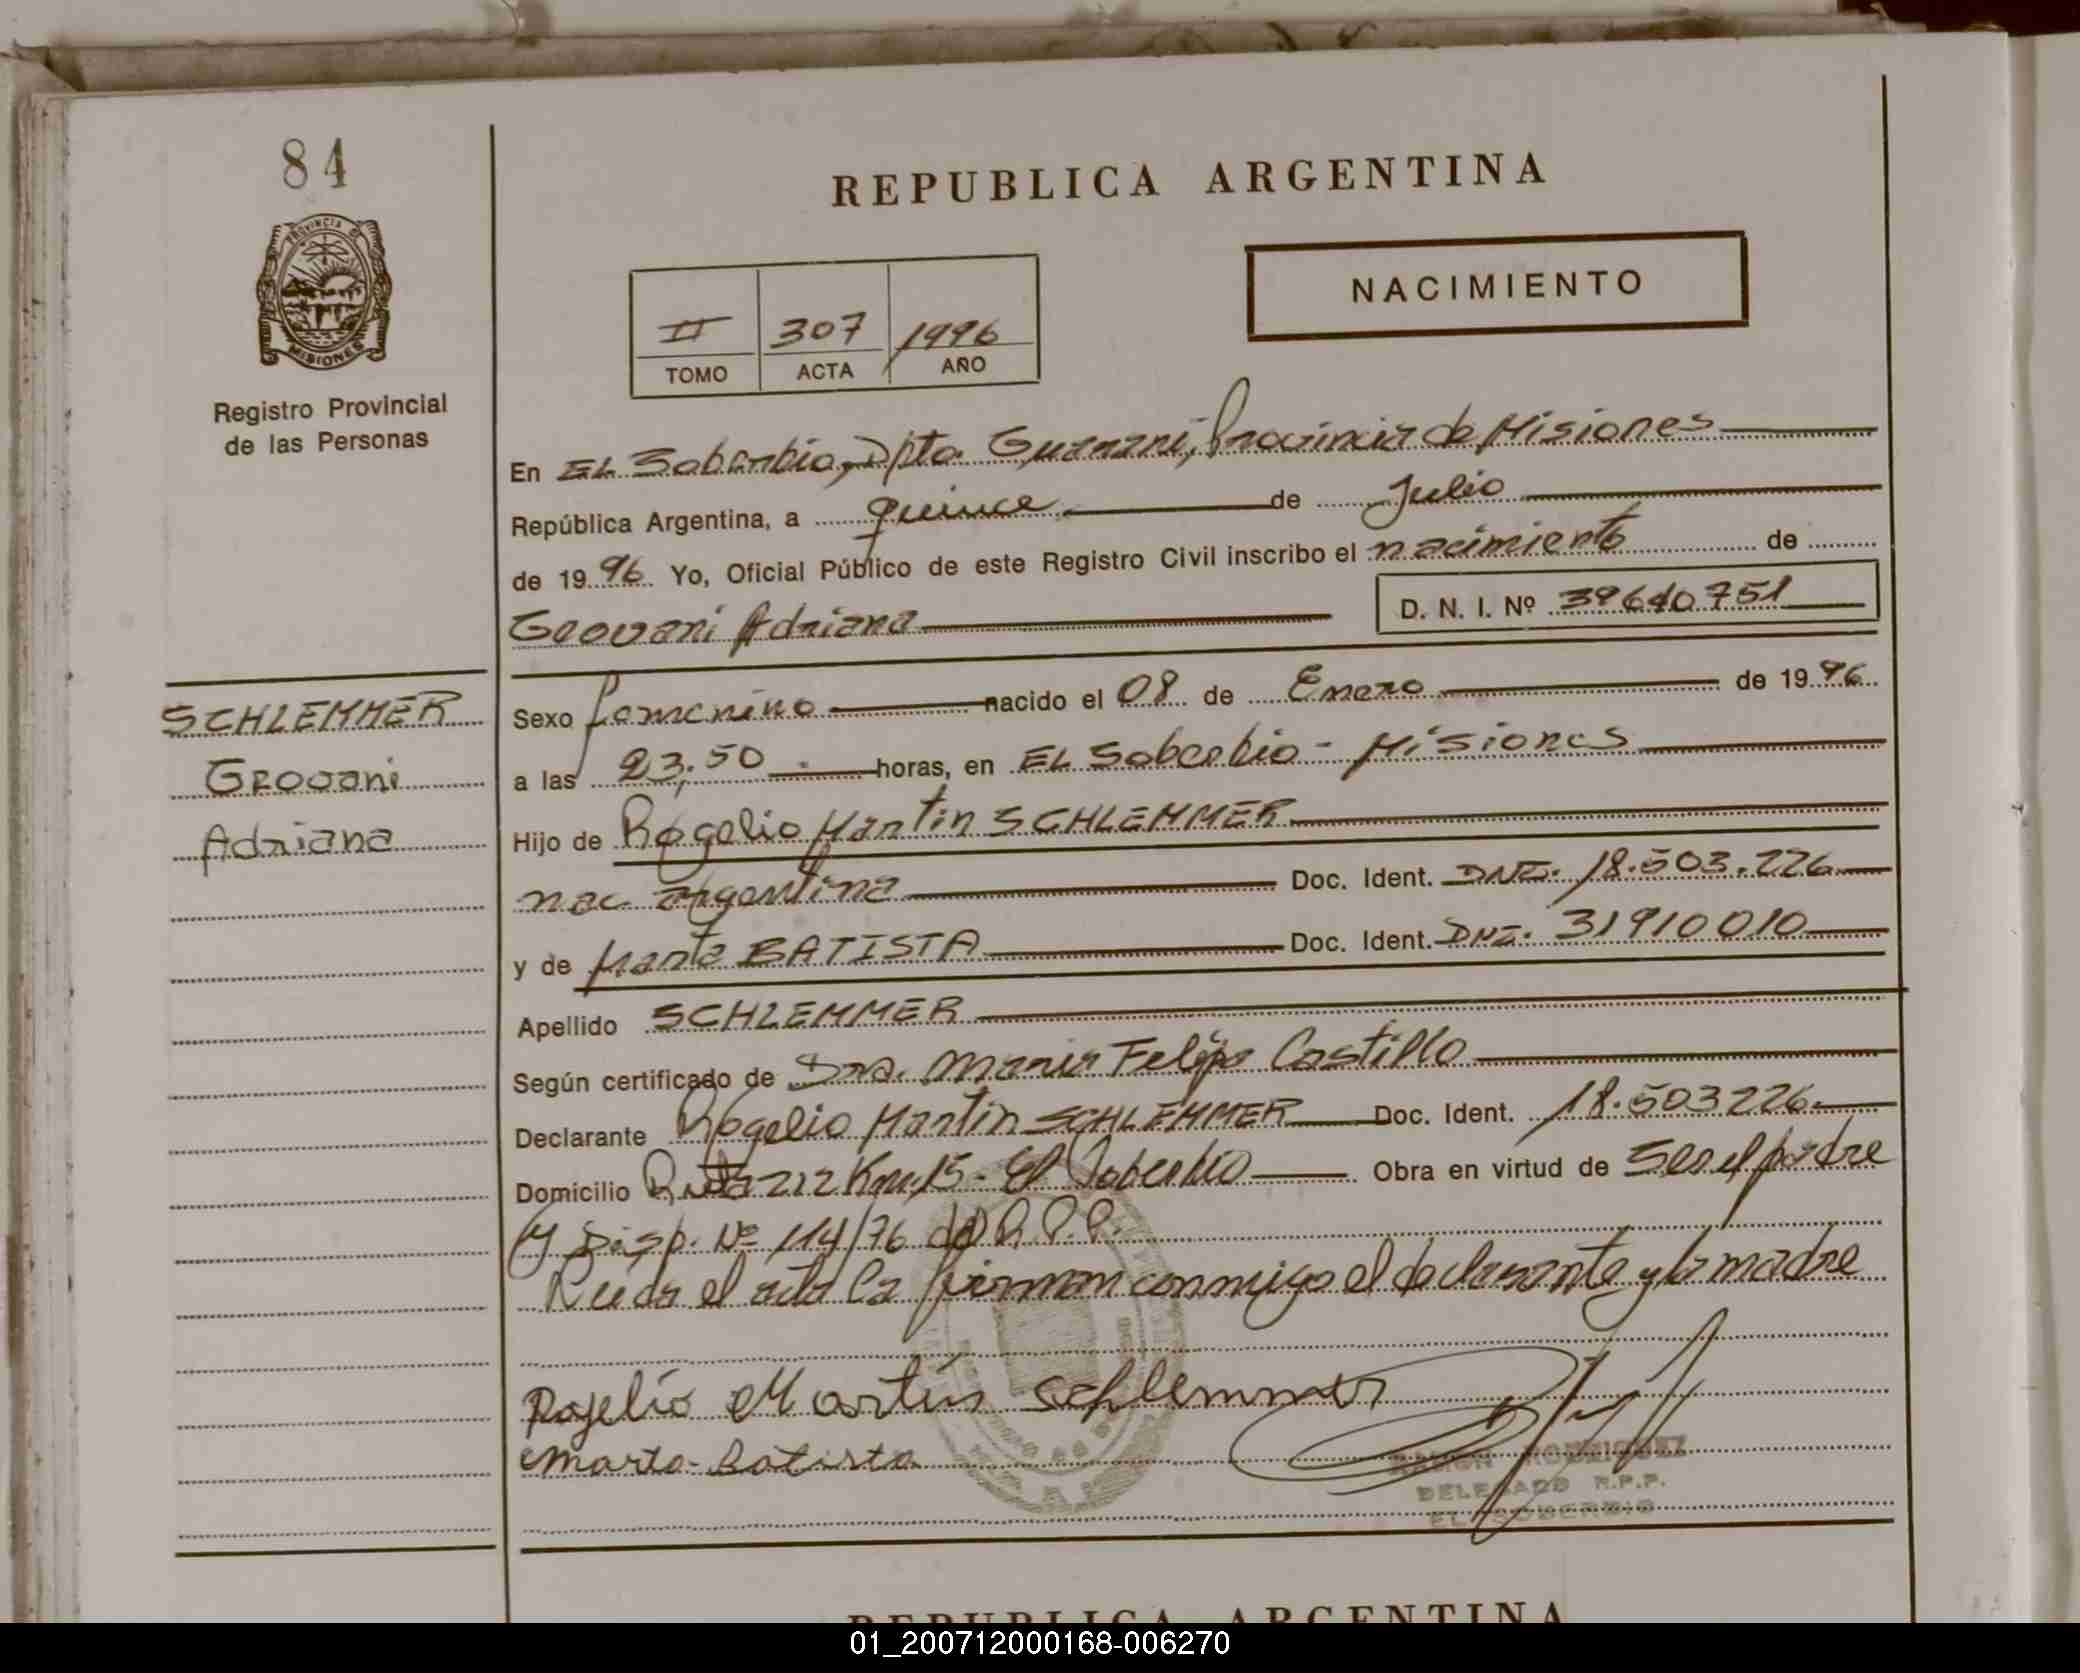 84
REPUBLICA ARGENTINA
PROVINCIA DE
MISIONES
NACIMIENTO
II 307 1996
TOMO ACTA AÑO
Registro Provincial
de las Personas
En EL Soberbio, Dpto. Guarani, Provincia de Misiones
República Argentina, a quince de Julio
de 1996 Yo, Oficial Público de este Registro Civil inscribo el nacimiento de
Geovani Adriana D. N. I. Nº 39640751
SCHLEMMER
Geovani
Adriana
Sexo femenino nacido el 08 de Enero de 1996
a las 23,50 horas, en EL Soberbio - Misiones
Hijo de Rogelio Martin SCHLEMMER
nac argentina Doc. Ident. DNI. 18.503.226
y de Marta BATISTA Doc. Ident. DNI. 31910010
Apellido SCHLEMMER
Según certificado de Dra. Maria Felipa Castillo
Declarante Rogelio Martin SCHLEMMER Doc. Ident. 18.503226
Domicilio Ruta 212 Km.15 - El Soberbio Obra en virtud de ser el padre
y Disp. Nº 114/76 del R.P.P.
Leida el acta la firman conmigo el declarante y la madre
Rogelio Martin Schlemmer
Marta Batista
RAMON RODRIGUEZ
DELEGADO R.P.P.
EL SOBERBIO
REPUBLICA ARGENTINA
01_200712000168-006270